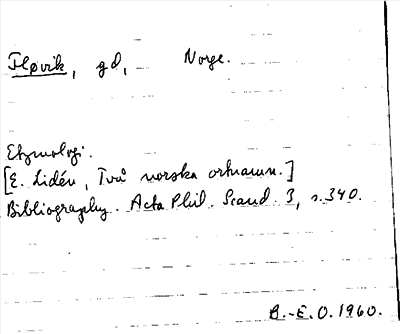 Fløvik, gd, Norge.
Etymologi.
[E. Lidén, Två norska ortnamn.]
Bibliography. Acta Phil. Scand. 3, s. 340.
B.-E.O. 1960.